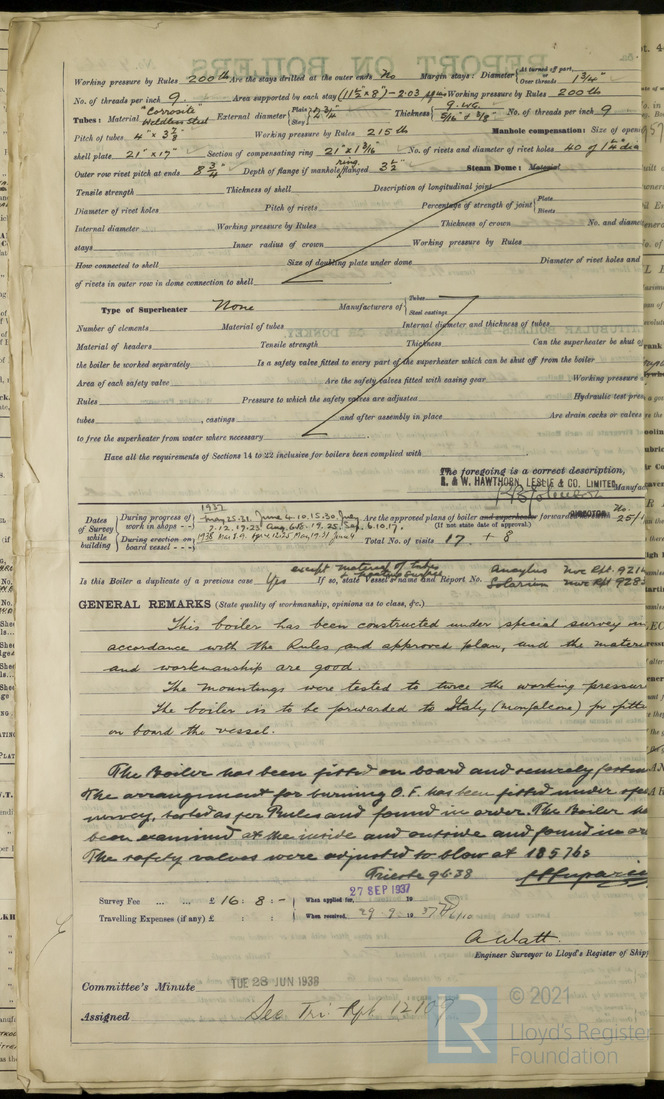 Working pressure by Rules 200 lb Are the stays drilled at the outer ends No Margin stays: Diameter { At turned off part, or Over threads 1 3/4"
No. of threads per inch 9 Area supported by each stay (11 1/2" x 8") - 2.03 Working pressure by Rules 200 lb
Tubes: Material "Corrosite" Weldless Steel External diameter { Plain 2 3/4" Stay Thickness { 9. W.G. 5/16" & 3/8" No. of threads per inch 9
Pitch of tubes 4" x 3 7/8" Working pressure by Rules 215 lb Manhole compensation: Size of open
shell plate 21" x 17" Section of compensating ring 21" x 1 3/16" No. of rivets and diameter of rivet holes 40 of 1 1/4" dia
Outer row rivet pitch at ends 8 3/4 Depth of flange if manhole ring flanged 3 1/2" Steam Dome: Material
Tensile strength Thickness of shell Description of longitudinal joint
Diameter of rivet holes Pitch of rivets Percentage of strength of joint { Plate Rivets
Internal diameter Working pressure by Rules Thickness of crown No. and diamete
stays Inner radius of crown Working pressure by Rules
How connected to shell Size of doubling plate under dome Diameter of rivet holes and
of rivets in outer row in dome connection to shell
Type of Superheater None Manufacturers of { Tubes Steel castings
Number of elements Material of tubes Internal diameter and thickness of tubes
Material of headers Tensile strength Thickness Can the superheater be shut of
the boiler be worked separately Is a safety valve fitted to every part of the superheater which can be shut off from the boiler
Area of each safety valve Are the safety valves fitted with easing gear Working pressure
Rules Pressure to which the safety valves are adjusted Hydraulic test pres
tubes , castings and after assembly in place Are drain cocks or valves
to free the superheater from water where necessary
Have all the requirements of Sections 14 to 22 inclusive for boilers been complied with
The foregoing is a correct description,
R. & W. HAWTHORN, LESLIE & CO. LIMITED Manufac
DIRECTOR
Dates of Survey while building { During progress of work in shops - - 1937 May 25.31. June 4.10.15.30. July 7.12.19.23. Aug. 6.18.19.25. Sep. 6.10.17. Are the approved plans of boiler and superheater forwarded No. 25/
(If not state date of approval.)
During erection on board vessel - - - 1938 Total No. of visits 17 + 8
Is this Boiler a duplicate of a previous case Yes except material of tubes If so, state Vessel's name and Report No. Ancylus Nwc Rpt. 921
Solarium Nwc Rpt 928
GENERAL REMARKS (State quality of workmanship, opinions as to class, &c.)
This boiler has been constructed under special survey in
accordance with the Rules and approved plan, and the materi
and workmanship are good.
The mountings were tested to twice the working pressure
The boiler is to be forwarded to Italy (Monfalcone) for fitti
on board the vessel.
The Boiler has been fitted on board and securely fasten
The arrangement for burning O.F. has been fitted under spe
survey, tested as per Rules and found in order. The Boiler ha
been examined at the inside and outside and found in or
The safety valves were adjusted to blow at 185 lbs
Trieste 9.6.38
Survey Fee ... ... £ 16 : 8 : - When applied for, 27 SEP 1937 19
Travelling Expenses (if any) £ : : When received, 29. 9. 19 37
A. Watt.
Engineer Surveyor to Lloyd's Register of Ship
Committee's Minute TUE 28 JUN 1938
Assigned See Tri. Rpt. 12107
LR
© 2021
Lloyd's Register
Foundation